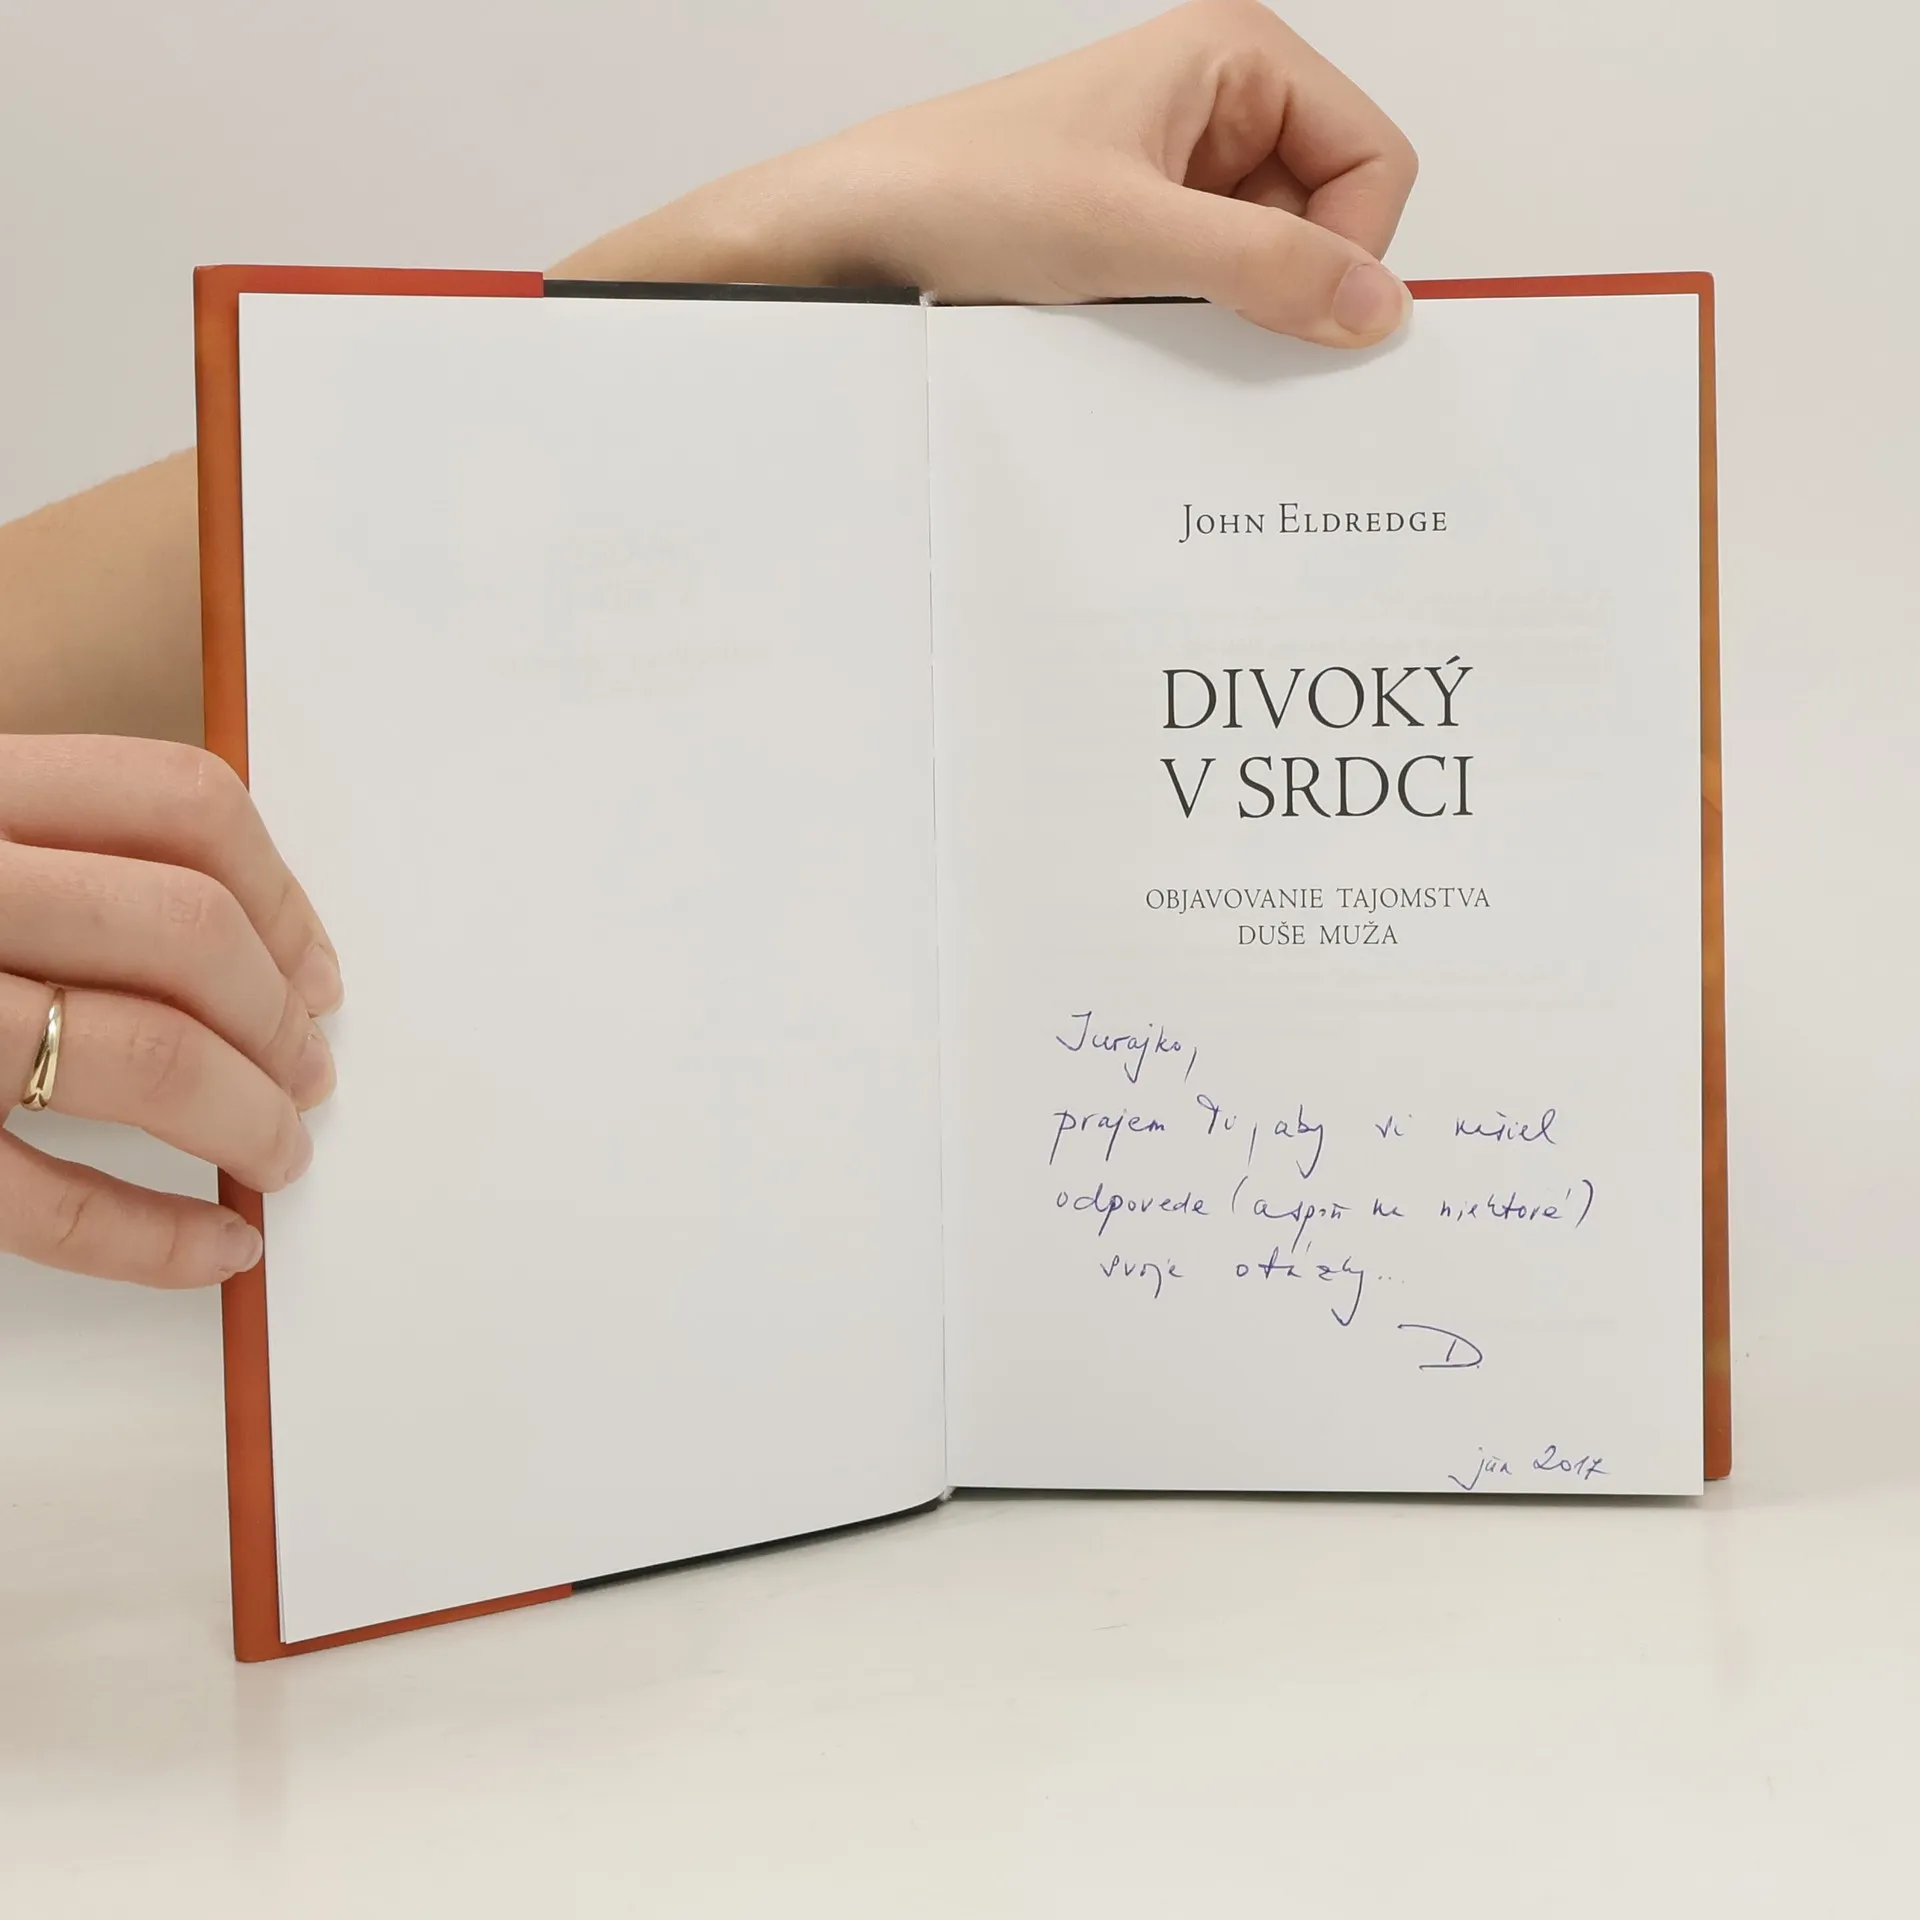 JOHN ELDREDGE
DIVOKÝ
V SRDCI
OBJAVOVANIE TAJOMSTVA
DUŠE MUŽA
Jurajko,
prajem Ti, aby si našiel
odpovede (aspoň na niektoré)
svoje otázky...
D.
jún 2017